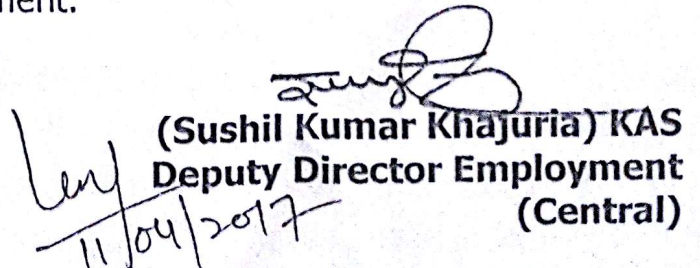 ment.
(Sushil Kumar Khajuria) KAS
Deputy Director Employment
(Central)
11/04/2017